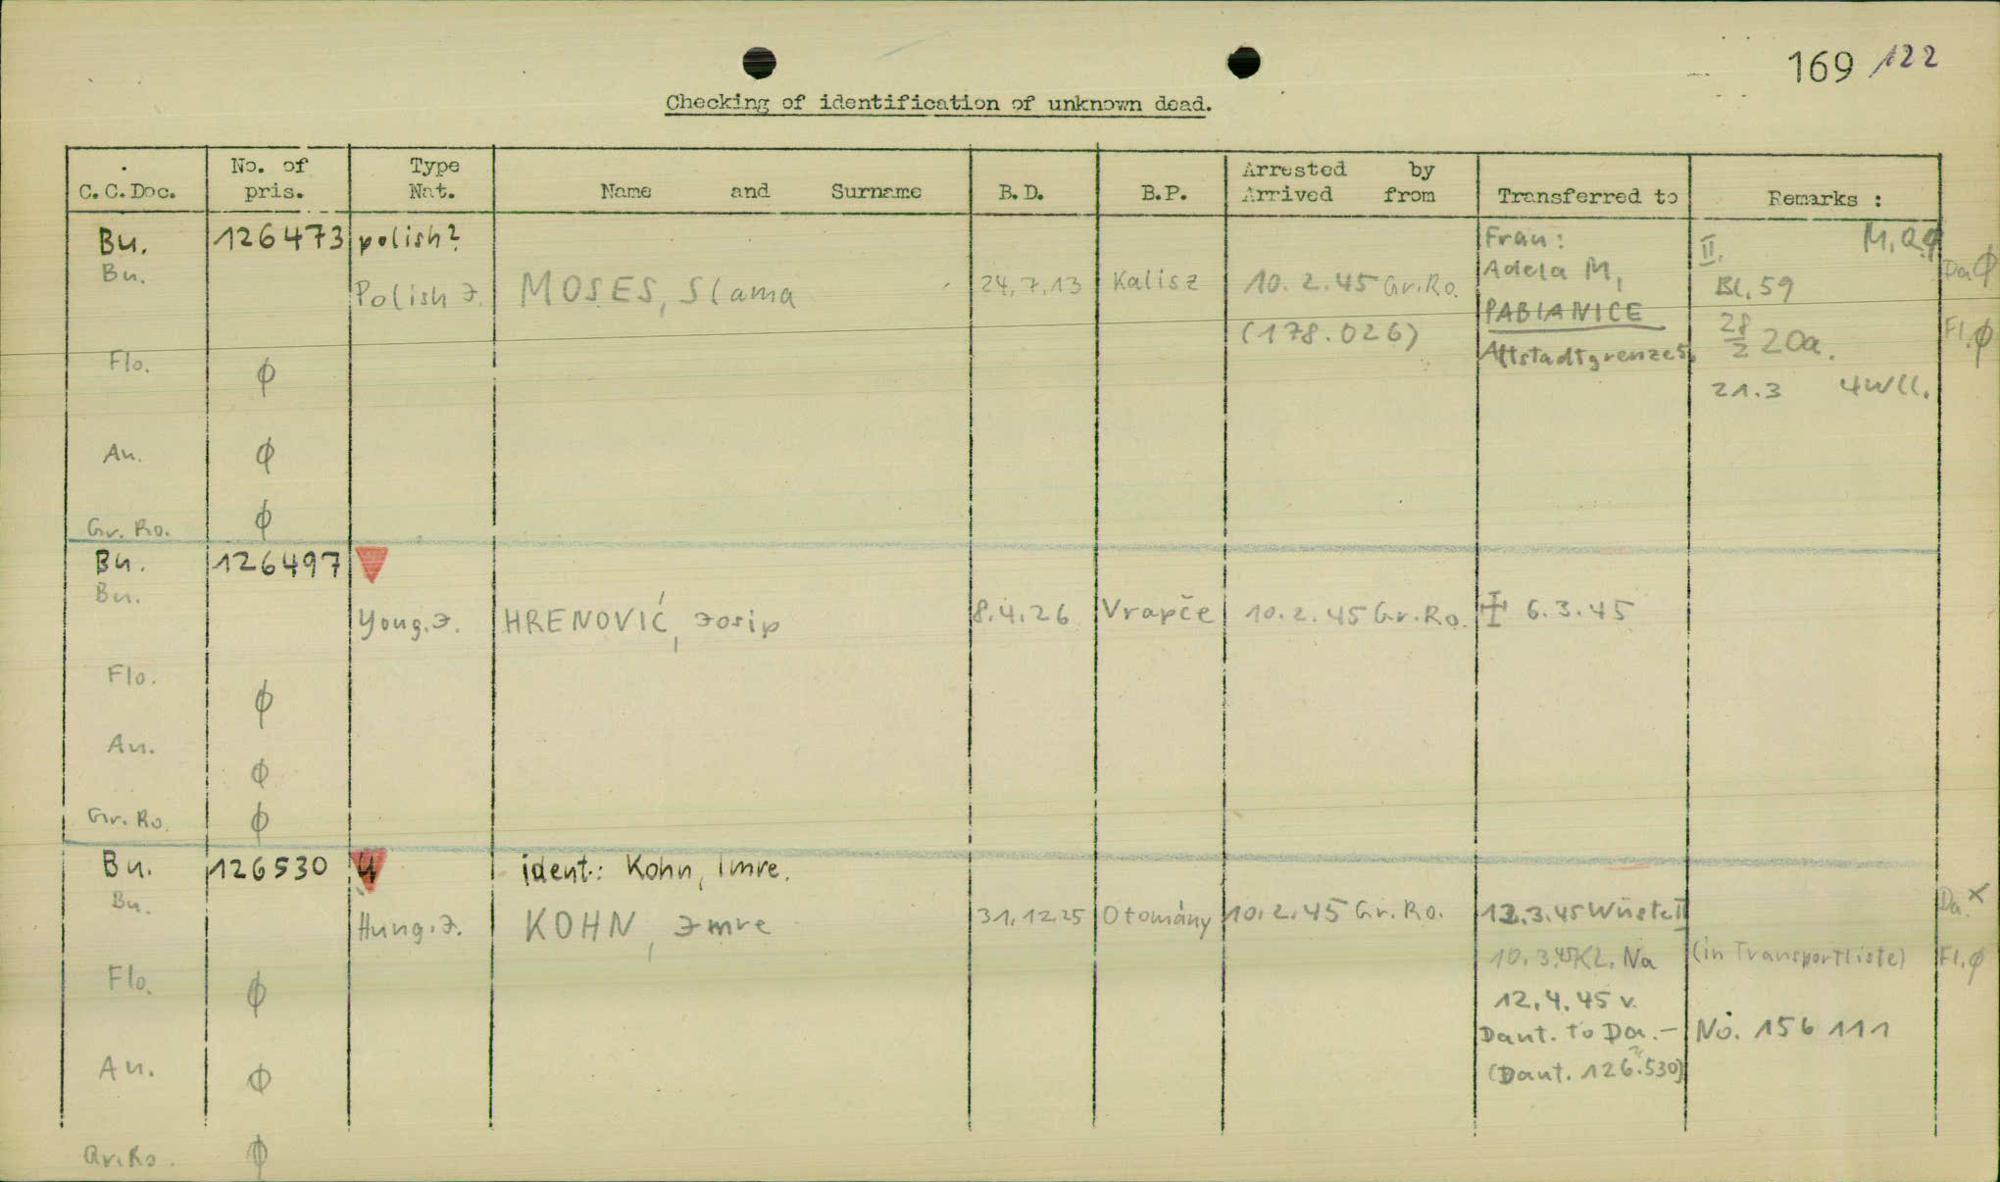 169 /122
Checking of identification of unknown dead.
C.C.Doc. No. of pris. Type Nat. Name and Surname B.D. B.P. Arrested by Arrived from Transferred to Remarks :
Bu. 126473 polish? Frau: II. M.
Bu. Polish J. MOSES, Slama 24.7.13 Kalisz 10.2.45 Gr.Ro. Adela M, Bl. 59 Da ϕ
(178.026) PABIANICE 28/2 20a. Fl. ϕ
Flo. ϕ 21.3
Au. ϕ
Gr. Ro. ϕ
Bu. 126497
Bu. Youg. J. HRENOVIĆ, Josip 8.4.26 Vrapče 10.2.45 Gr.Ro. 6.3.45
Flo. ϕ
Au. ϕ
Gr. Ro. ϕ
Bu. 126530 U ident.: Kohn, Imre.
Bu. Hung. J. KOHN, Jmre 31.12.25 Otomány 10.2.45 Gr.Ro. 13.3.45 Wüste II Da. x
10.3.45 KL. Na (in Transportliste) Fl. ϕ
Flo. ϕ 12.4.45 v.
Daut. to Da.- No. 156 111
Au. ϕ (Daut. 126.530)
Gr. Ro. ϕ